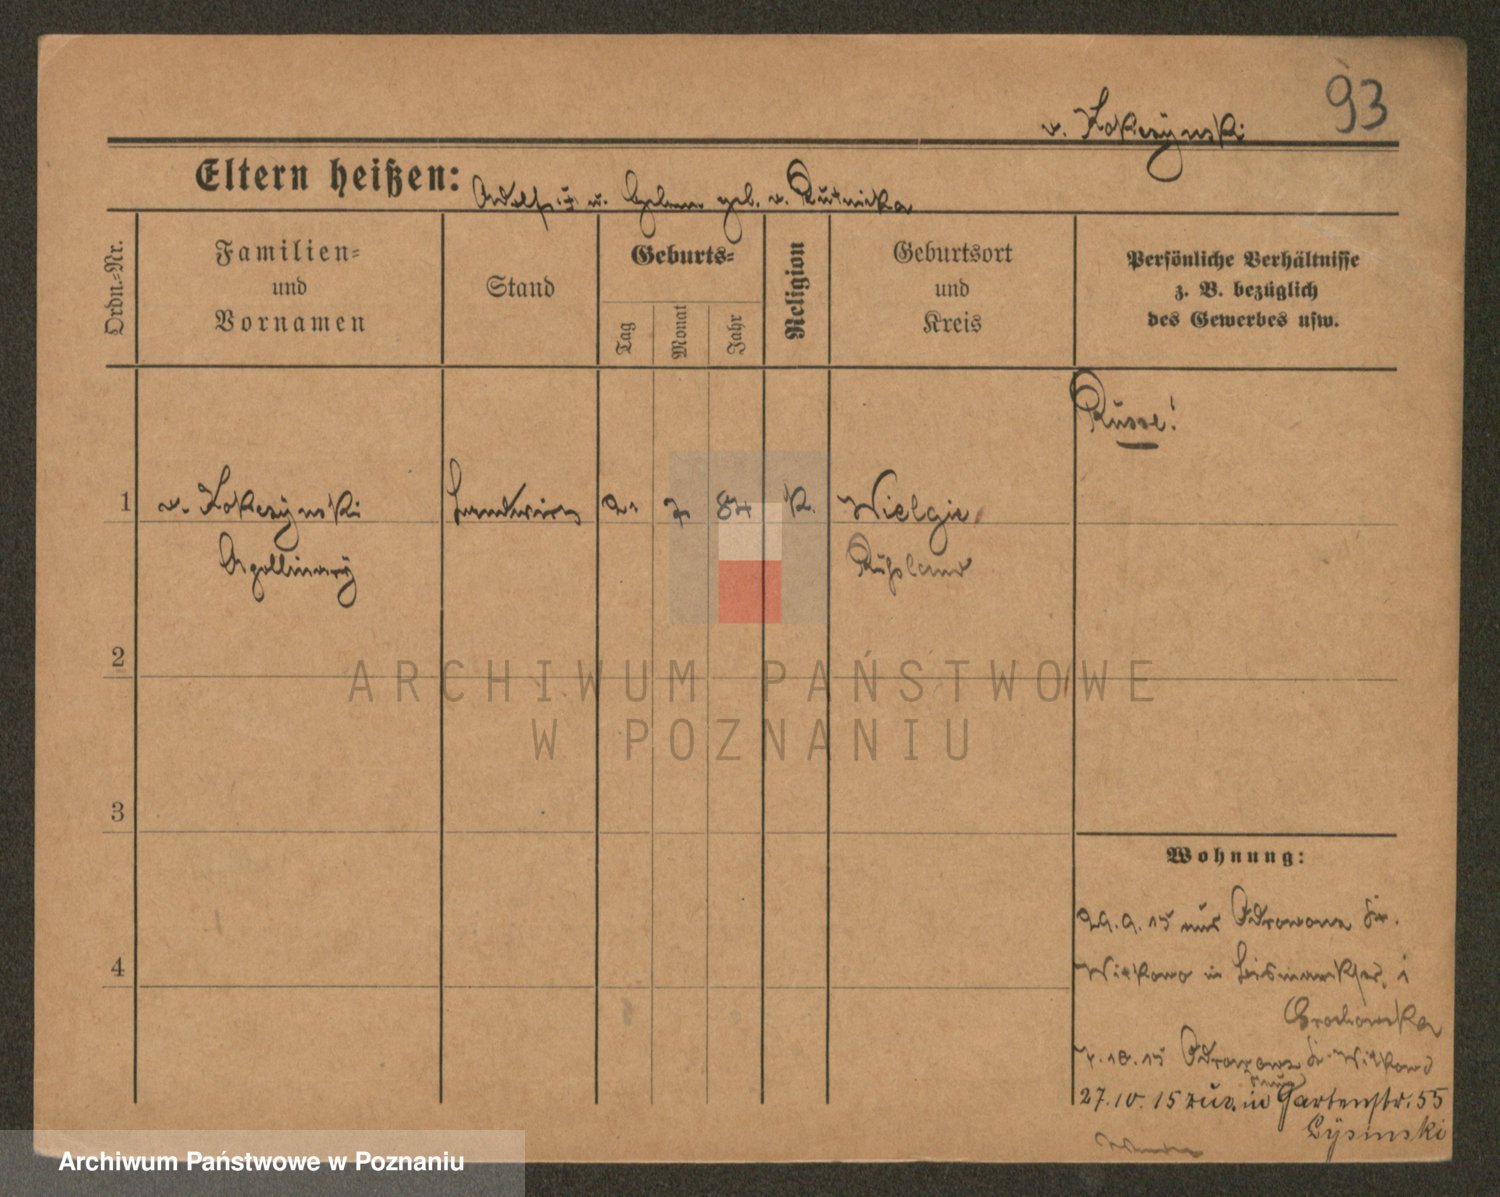 93
v. Kokczyński
Eltern heißen:
u. geb. v. Rutnicka
Ordn.-Nr.
Familien-
und
Vornamen
Stand
Geburts-
Tag
Monat
Jahr
Religion
Geburtsort
und
Kreis
Persönliche Verhältnisse
z. B. bezüglich
des Gewerbes usw.
Russe!
1
v. Kokczyński
Apollinary
Landwirt
2. 7. 84
k.
Wielgie
Rußland
2
3
4
Wohnung:
29.9.15 aus Odrowonz Kr.
Witkowo in
Grochowska
Odrowonz Kr. Witkowo
27.10.15 zur. in Gartenstr. 55
Łysinski
ARCHIWUM PAŃSTWOWE
W POZNANIU
Archiwum Państwowe w Poznaniu